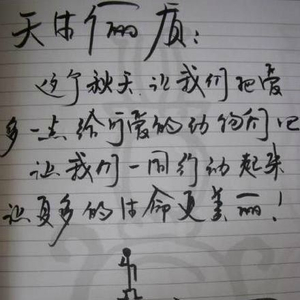 天体俪质:
这个秋天,让我们把爱
多一点给可爱的动物们吧
让我们一同行动起来
让更多的体命更美丽!